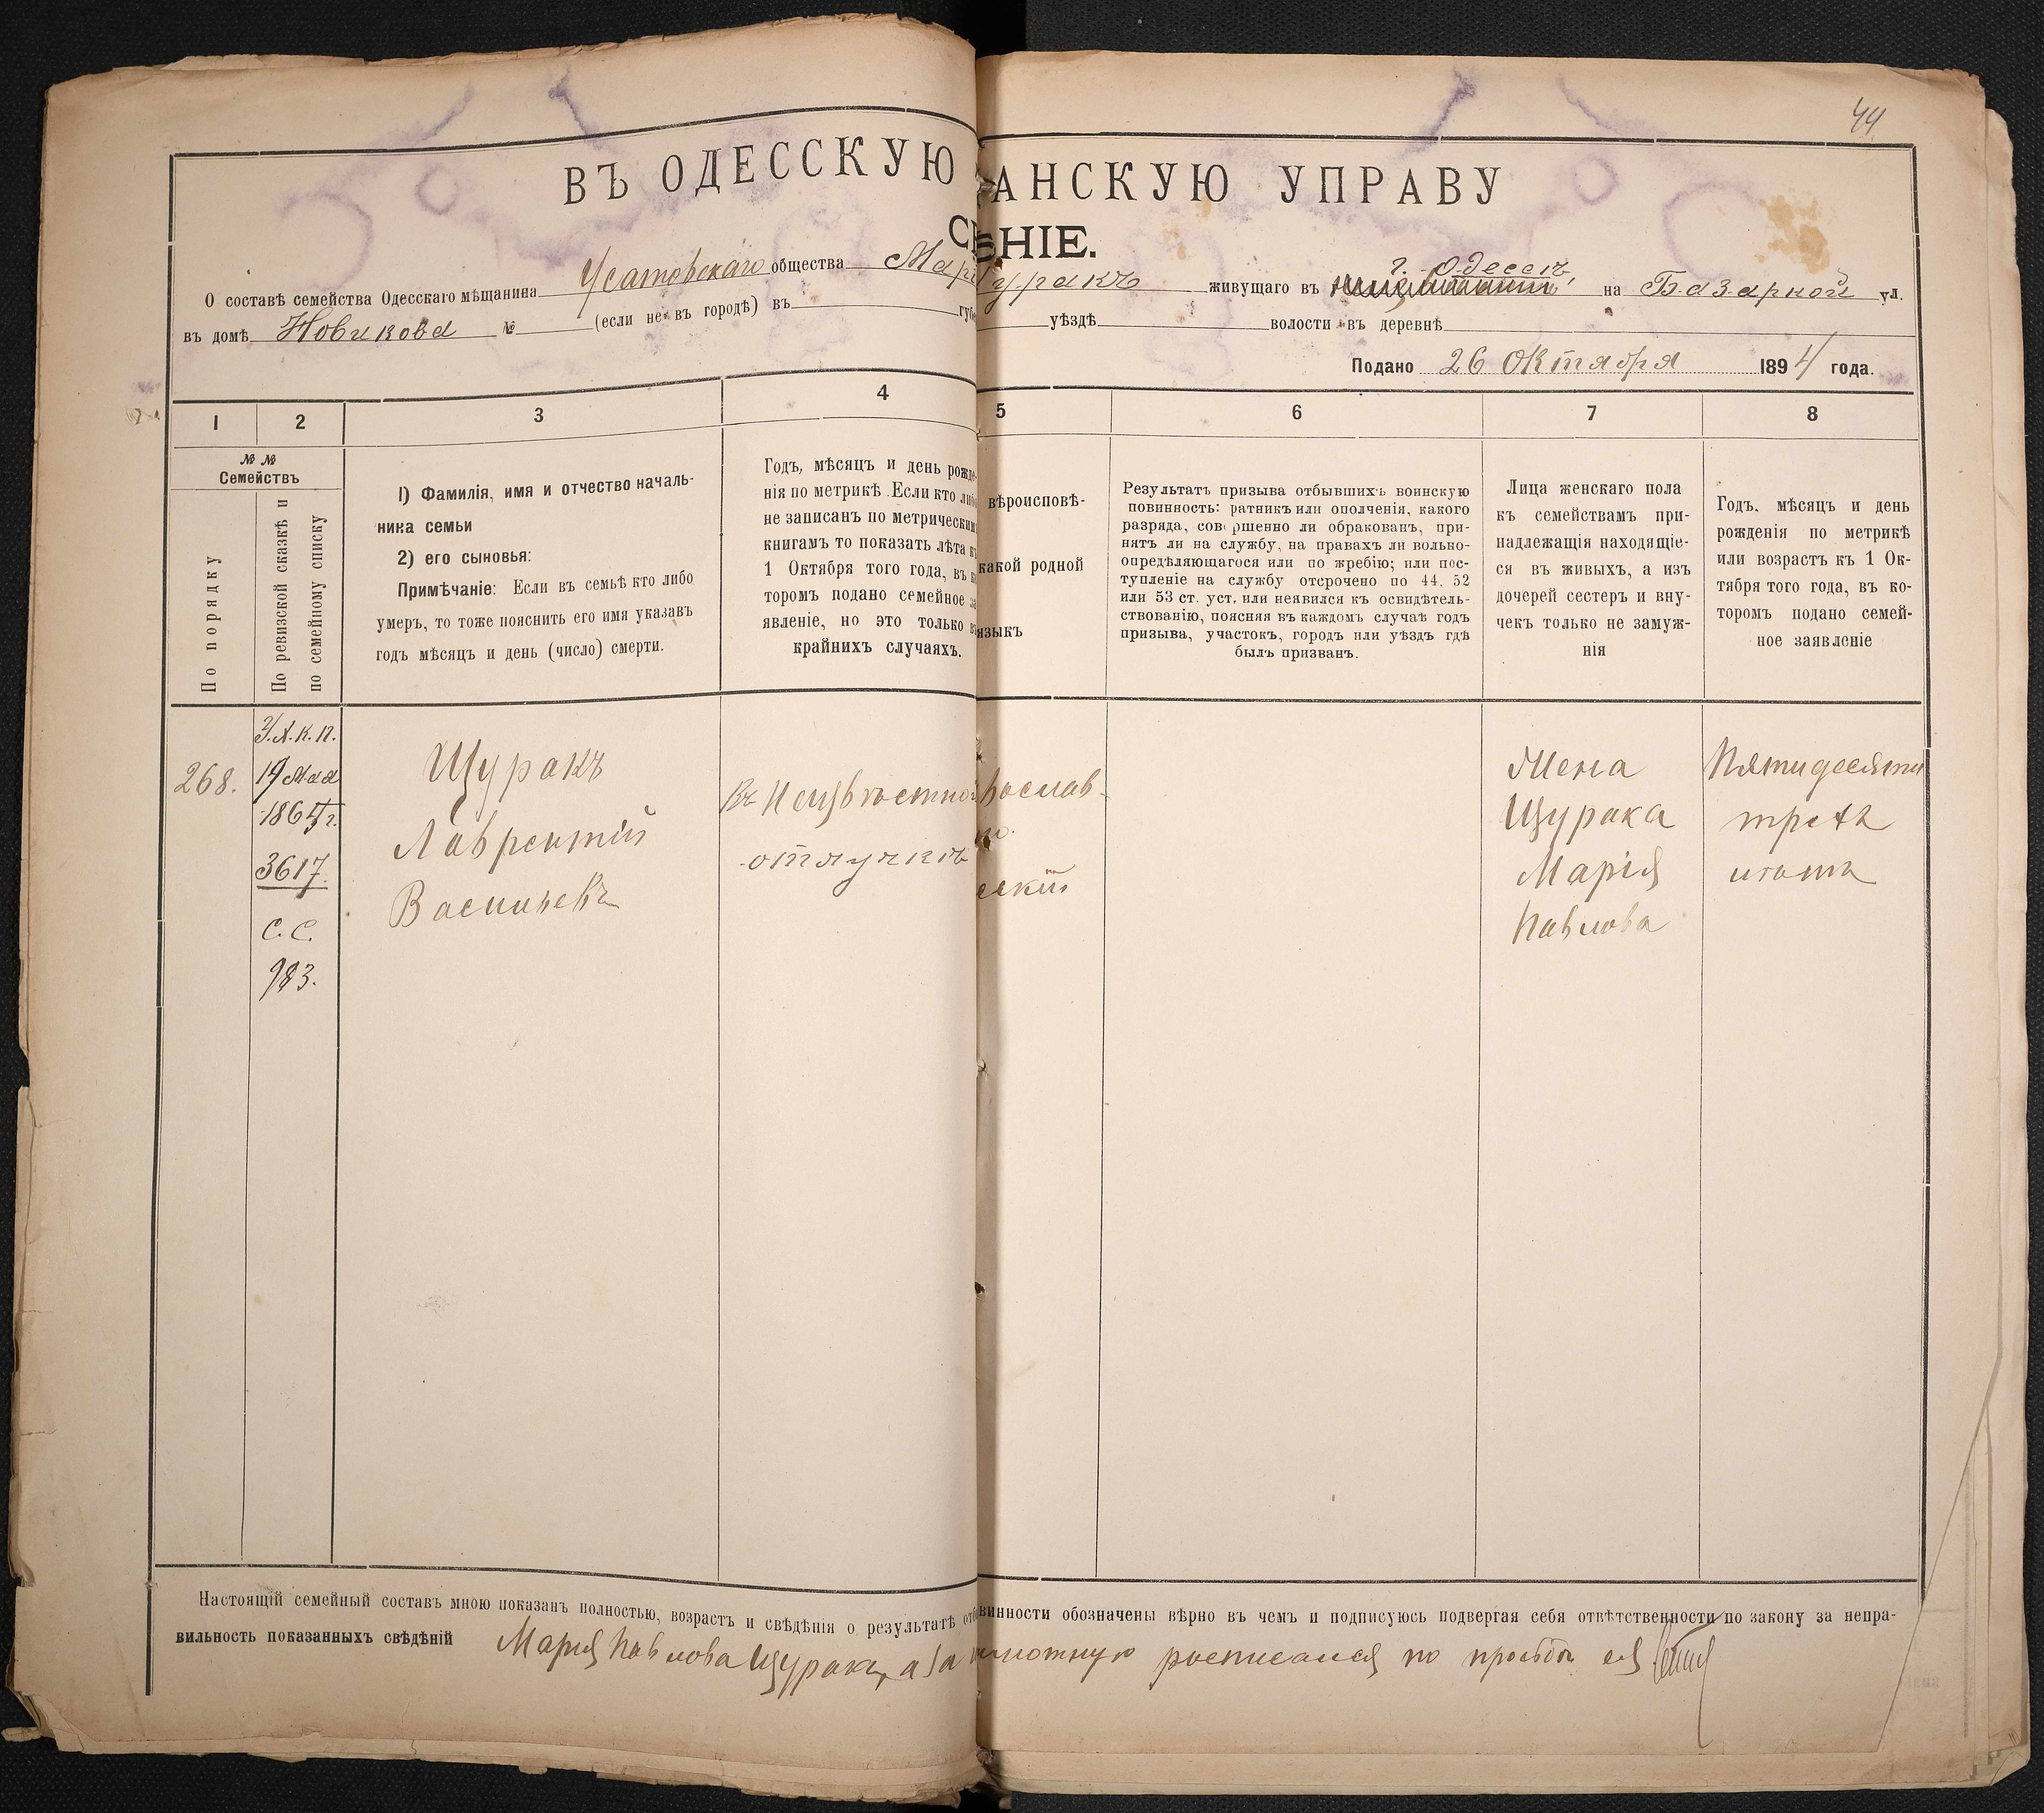 44
ВЪ ОДЕССКУЮ АНСКУЮ УПРАВУ
НІЕ.
О составѣ семейства Одесскаго мѣщанина Усатовскаго общества Марі уракъ живущаго въ г. Одессѣ на Базарной ул.
въ домѣ Новикова № (если не въ городѣ) въ губе уѣздѣ волости въ деревнѣ
Подано 26 Октября 1894 года.
1 2 3 4 5 6 7 8
№ №
Семействъ
По порядку
По ревизской сказкѣ и
по семейному списку
1) Фамилія, имя и отчество началь-
ника семьи
2) его сыновья:
Примѣчаніе: Если въ семьѣ кто либо
умеръ, то тоже пояснить его имя указавъ
годъ мѣсяцъ и день (число) смерти.
Годъ, мѣсяцъ и день рожде-
нія по метрикѣ. Если кто либо
не записанъ по метрическимъ
книгамъ то показать лѣта къ
1 Октября того года, въ ко
торомъ подано семейное за
явленіе, но это только въ
крайнихъ случаяхъ.
вѣроисповѣ-
какой родной
языкъ
Результатъ призыва отбывшихъ воинскую
повинность: ратникъ или ополченія, какого
разряда, совершенно ли обракованъ, при-
нятъ ли на службу, на правахъ ли вольно-
опредѣляющагося или по жребію; или пос-
тупленіе на службу отсрочено по 44, 52
или 53 ст. уст. или неявился къ освидѣтель-
ствованію, поясняя въ каждомъ случаѣ годъ
призыва, участокъ, городъ или уѣздъ гдѣ
былъ призванъ.
Лица женскаго пола
къ семействамъ при-
надлежащія находящіе-
ся въ живыхъ, а изъ
дочерей сестеръ и вну-
чекъ только не замуж-
нія
Годъ, мѣсяцъ и день
рожденія по метрикѣ
или возрастъ къ 1 Ок-
тября того года, въ ко-
торомъ подано семей-
ное заявленіе
268.
У.Х.К.П.
19 Мая
1865 г.
3617.
С.С.
983.
Щуракъ
Лаврентій
Васильевъ
Въ Неизвѣстной
отлучкѣ
вослав-
но.
сскій
Жена
Щурака
Марія
Павлова
Пятидесяти
трехъ
лѣтъ
Настоящій семейный составъ мною показанъ полностью, возрастъ и свѣдѣнія о результатѣ отб винности обозначены вѣрно въ чемъ и подписуюсь подвергая себя отвѣтственности по закону за непра-
вильность показанныхъ свѣдѣній Марія Павлова Щуракъ, а за мотную росписался по прозьбѣ ея